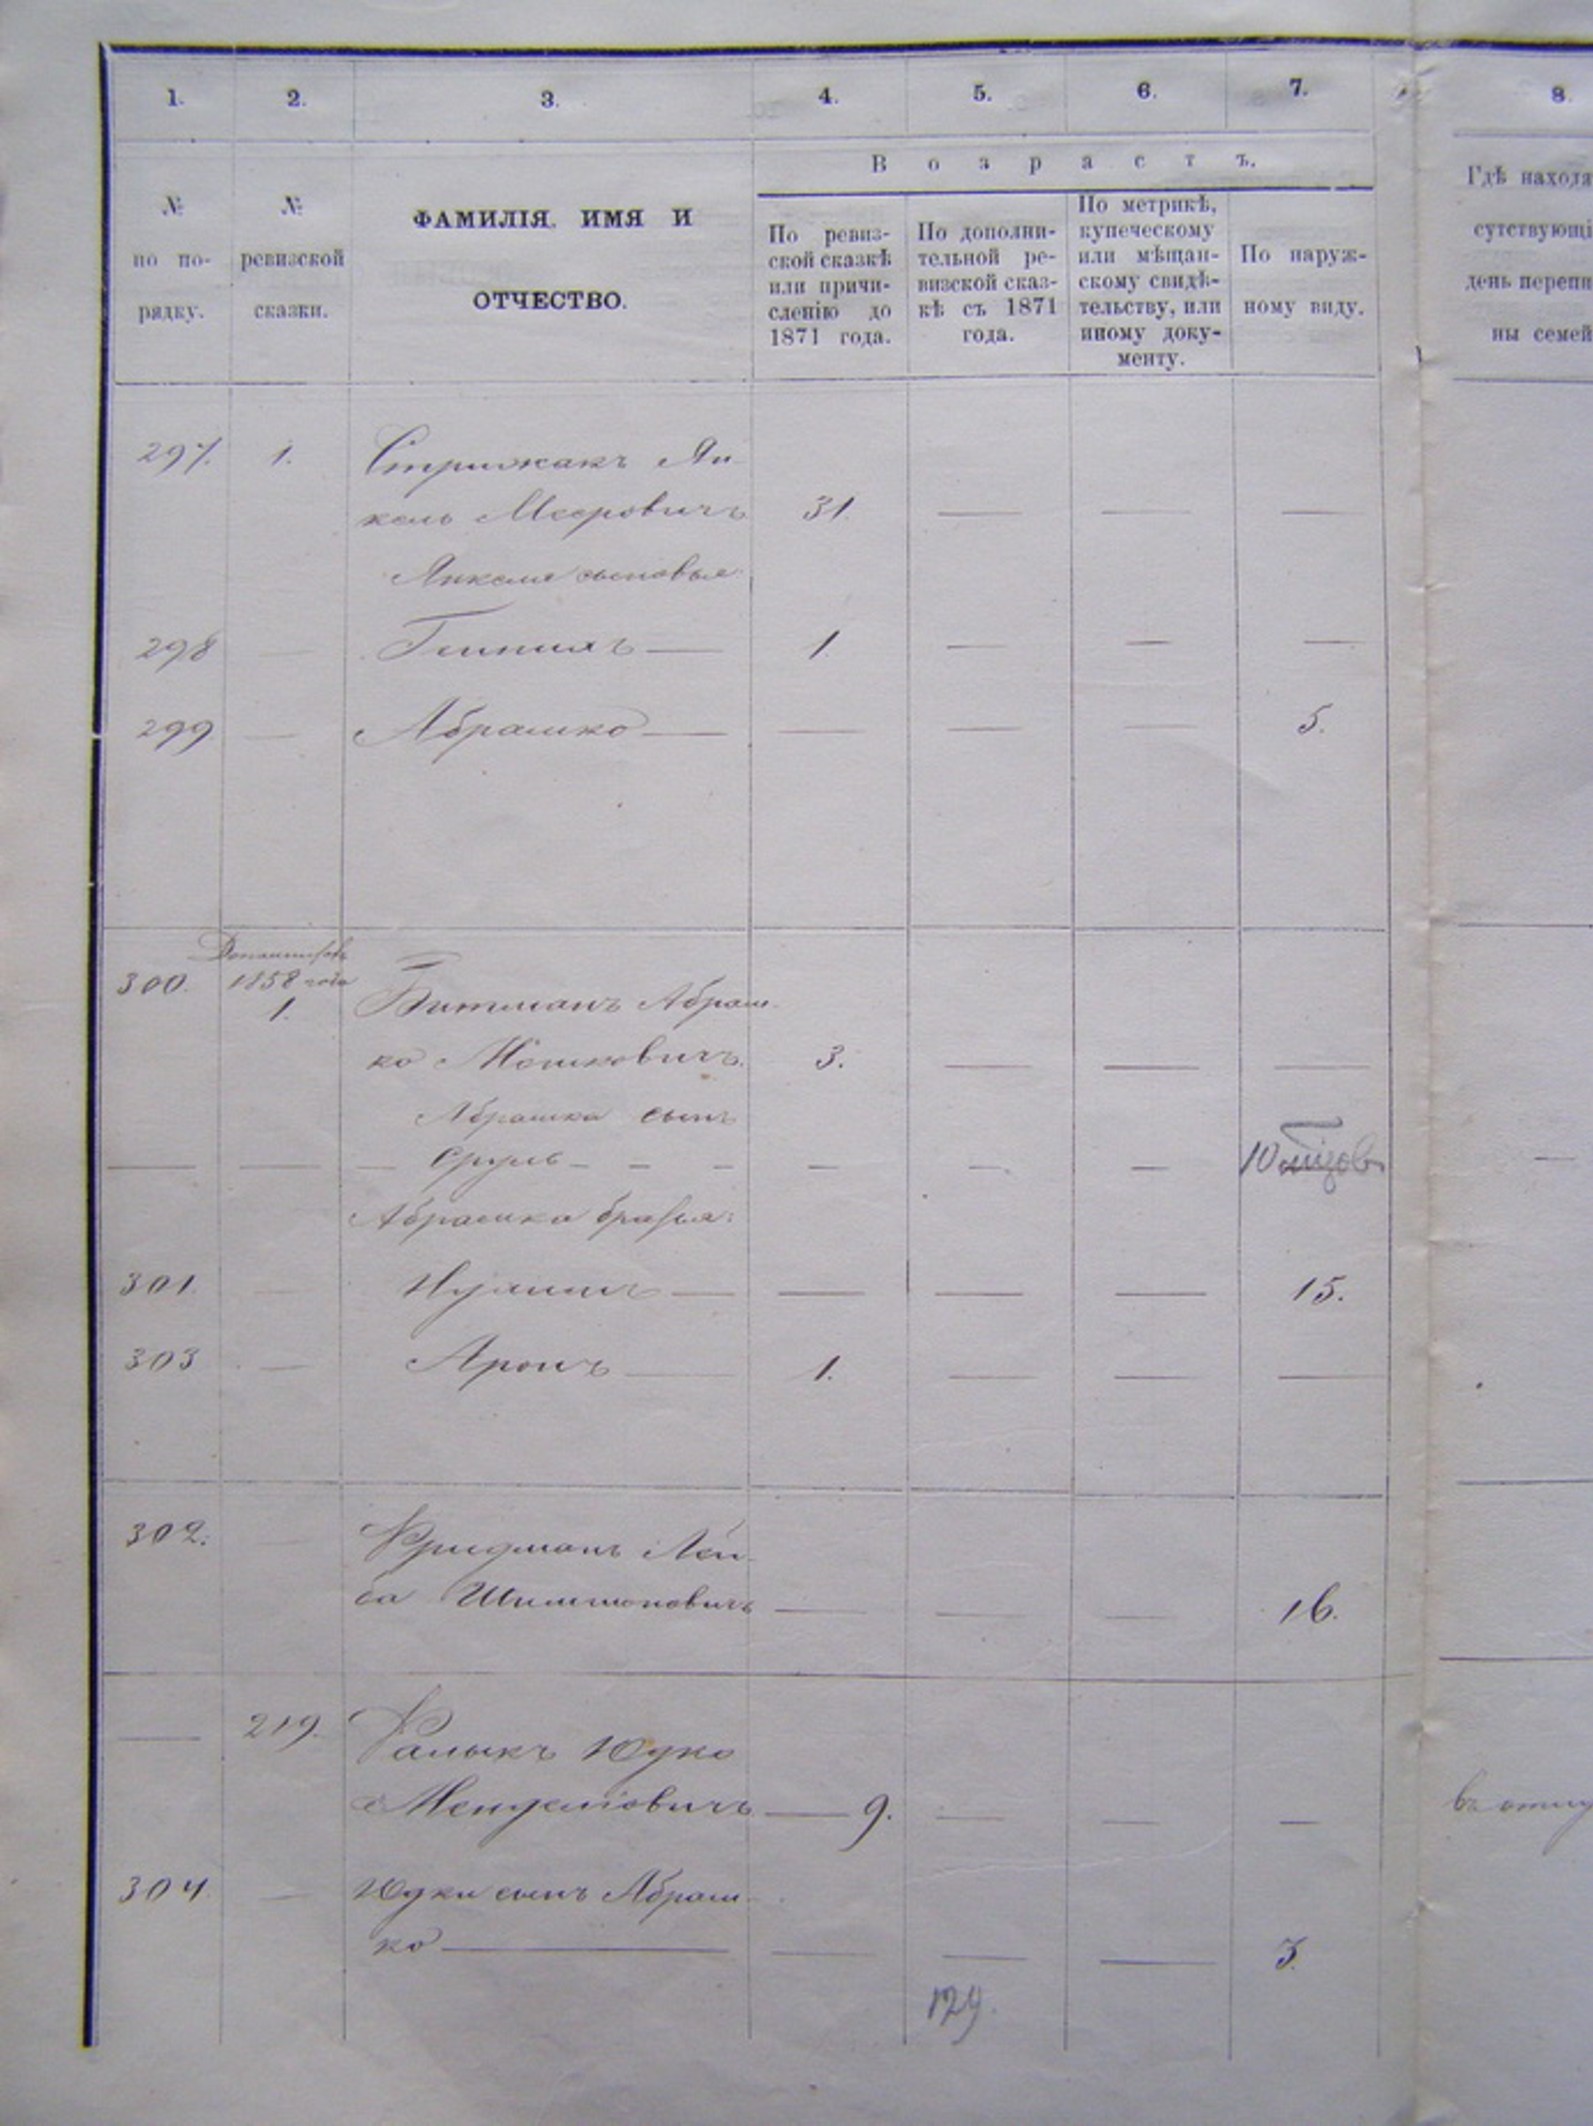 1. 2. 3. 4. 5. 6. 7. 8.
В о з р а с т ъ.
№ по по-рядку.
№ ревизской сказки.
ФАМИЛІЯ, ИМЯ И
ОТЧЕСТВО.
По ревиз-
ской сказкѣ
или причи-
сленію до
1871 года.
По дополни-
тельной ре-
визской сказ-
кѣ съ 1871
года.
По метрикѣ,
купеческому
или мѣщан-
скому свидѣ-
тельству, или
иному доку-
менту.
По наруж-
ному виду.
Гдѣ находя
сутствующі
день перепи
ны семей
297. 1. Стрижакъ Ян-
кель Мееровичъ 31 — — —
Янкеля сыновья
298 — 1. — — —
299 — Абрашко — — — — 5.
300. 1858 года
1. Витманъ Абраш-
ко Мошковичъ. 3. — — —
Абрашка сынъ
— — — Сруль — — — — — — 10
Абрашка братья:
301. — — — — — 15.
303 — Аронъ — 1. — — —
302. — Фридманъ Лей-
ба — — — 16.
— 219. Юдко
Менделіовичъ — 9. — — —
304. — Юдки сынъ Абраш-
ко — — — — 3.
129.